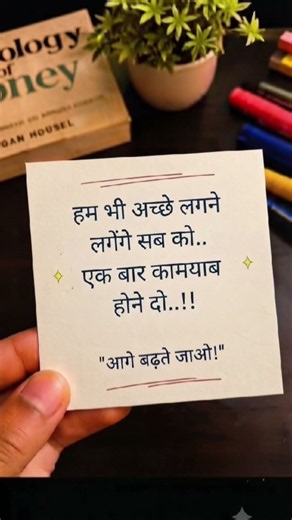 ology
of
oney
GAN HOUSEL
हम भी अच्छे लगने
लगेंगे सब को..
एक बार कामयाब
होने दो..!!
"आगे बढ़ते जाओ!"